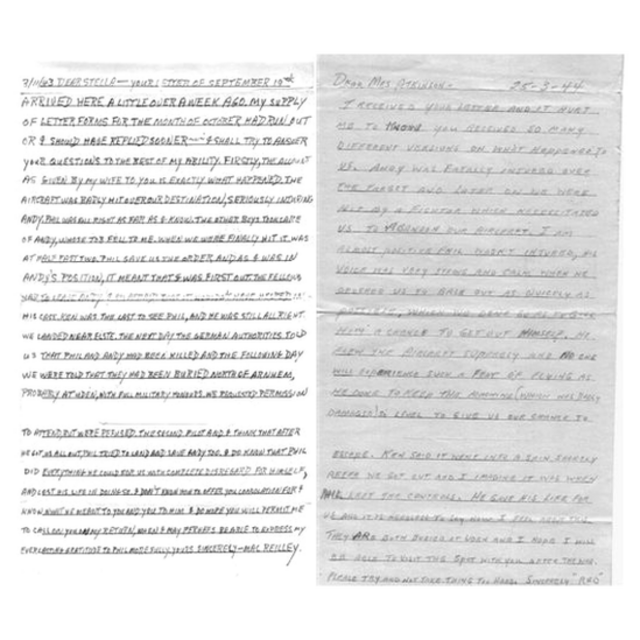 7/11/43. DEAR STELLA— YOUR LETTER OF SEPTEMBER 19th
ARRIVED HERE A LITTLE OVER A WEEK AGO. MY SUPPLY
OF LETTER FORMS FOR THE MONTH OF OCTOBER HAD RUN OUT
OR I SHOULD HAVE REPLIED SOONER— I SHALL TRY TO ANSWER
YOUR QUESTIONS TO THE BEST OF MY ABILITY. FIRSTLY, THE ACCOUNT
AS GIVEN BY MY WIFE TO YOU IS EXACTLY WHAT HAPPENED. THE
AIRCRAFT WAS BADLY HIT OVER OUR DESTINATION, SERIOUSLY INJURING
ANDY. PHIL WAS ALL RIGHT AS FAR AS I KNOW. THE OTHER BOYS TOOK CARE
OF ANDY, WHOSE JOB FELL TO ME. WHEN WE WERE FINALLY HIT IT WAS
AT PHIL SAVE US THE ORDER AND AS I WAS IN
ANDY'S POSITION, IT MEANT THAT I WAS FIRST OUT. THE FELLOWS
HIS CASE. KEN WAS THE LAST TO SEE PHIL, AND HE WAS STILL ALRIGHT.
WE LANDED NEAR ELST. THE NEXT DAY THE GERMAN AUTHORITIES TOLD
US THAT PHIL AND ANDY HAD BEEN KILLED AND THE FOLLOWING DAY
WE WERE TOLD THAT THEY HAD BEEN BURIED NORTH OF ARNHEM,
PROBABLY AT UDEN, WITH FULL MILITARY HONOURS. WE REQUESTED PERMISSION
TO ATTEND, BUT WERE REFUSED. THE SECOND PILOT AND I THINK THAT AFTER
HE GOT US ALL OUT, PHIL TRIED TO LAND AND SAVE ANDY TOO. I DO KNOW THAT PHIL
DID EVERYTHING HE COULD FOR US WITH COMPLETE DISREGARD FOR HIMSELF,
AND LOST HIS LIFE IN DOING SO. I DON'T KNOW HOW TO OFFER YOU CONSOLATION FOR I
KNOW WHAT HE MEANT TO YOU AND YOU TO HIM. I DO HOPE YOU WILL PERMIT ME
TO CALL ON YOU ON MY RETURN, WHEN I MAY PERHAPS BE ABLE TO EXPRESS MY
EVERLASTING GRATITUDE TO PHIL MORE FULLY. YOURS SINCERELY—MAC REILLEY.
DEAR MRS ATKINSON- 25-3-44
I RECEIVED YOUR LETTER AND IT HURT
ME TO KNOW YOU RECEIVED SO MANY
DIFFERENT VERSIONS ON WHAT HAPPENED TO
US. ANDY WAS FATALLY INJURED OVER
THE TARGET AND LATER ON WE WERE
HIT BY A FIGHTER WHICH NECESSITATED
US TO ABANDON OUR AIRCRAFT. I AM
ALMOST POSITIVE PHIL WASN'T INJURED, HIS
VOICE WAS VERY STRONG AND CALM WHEN HE
ORDERED US TO BALE OUT AS QUICKLY AS
POSSIBLE, WHICH WE DONE SO AS TO GIVE
HIM A CHANCE TO GET OUT HIMSELF. HE
FLEW THE AIRCRAFT SUPERBLY AND NO ONE
WILL EXPERIENCE SUCH A FEAT OF FLYING AS
HE DONE TO KEEP THE MACHINE (WHICH WAS BADLY
DAMAGED) LEVEL TO GIVE US OUR CHANCE TO
ESCAPE. KEN SAID IT WENT INTO A SPIN SHORTLY
AFTER WE GOT OUT AND I IMAGINE IT WAS WHEN
PHIL LEFT THE CONTROLS. HE GAVE HIS LIFE FOR
US AND IT IS NEEDLESS TO SAY HOW I FEEL ABOUT THIS.
THEY ARE BOTH BURIED AT UDEN AND I HOPE I WILL
BE ABLE TO VISIT THE SPOT WITH YOU AFTER THE WAR.
PLEASE TRY AND NOT TAKE THING TOO HARD. SINCERELY "RED"